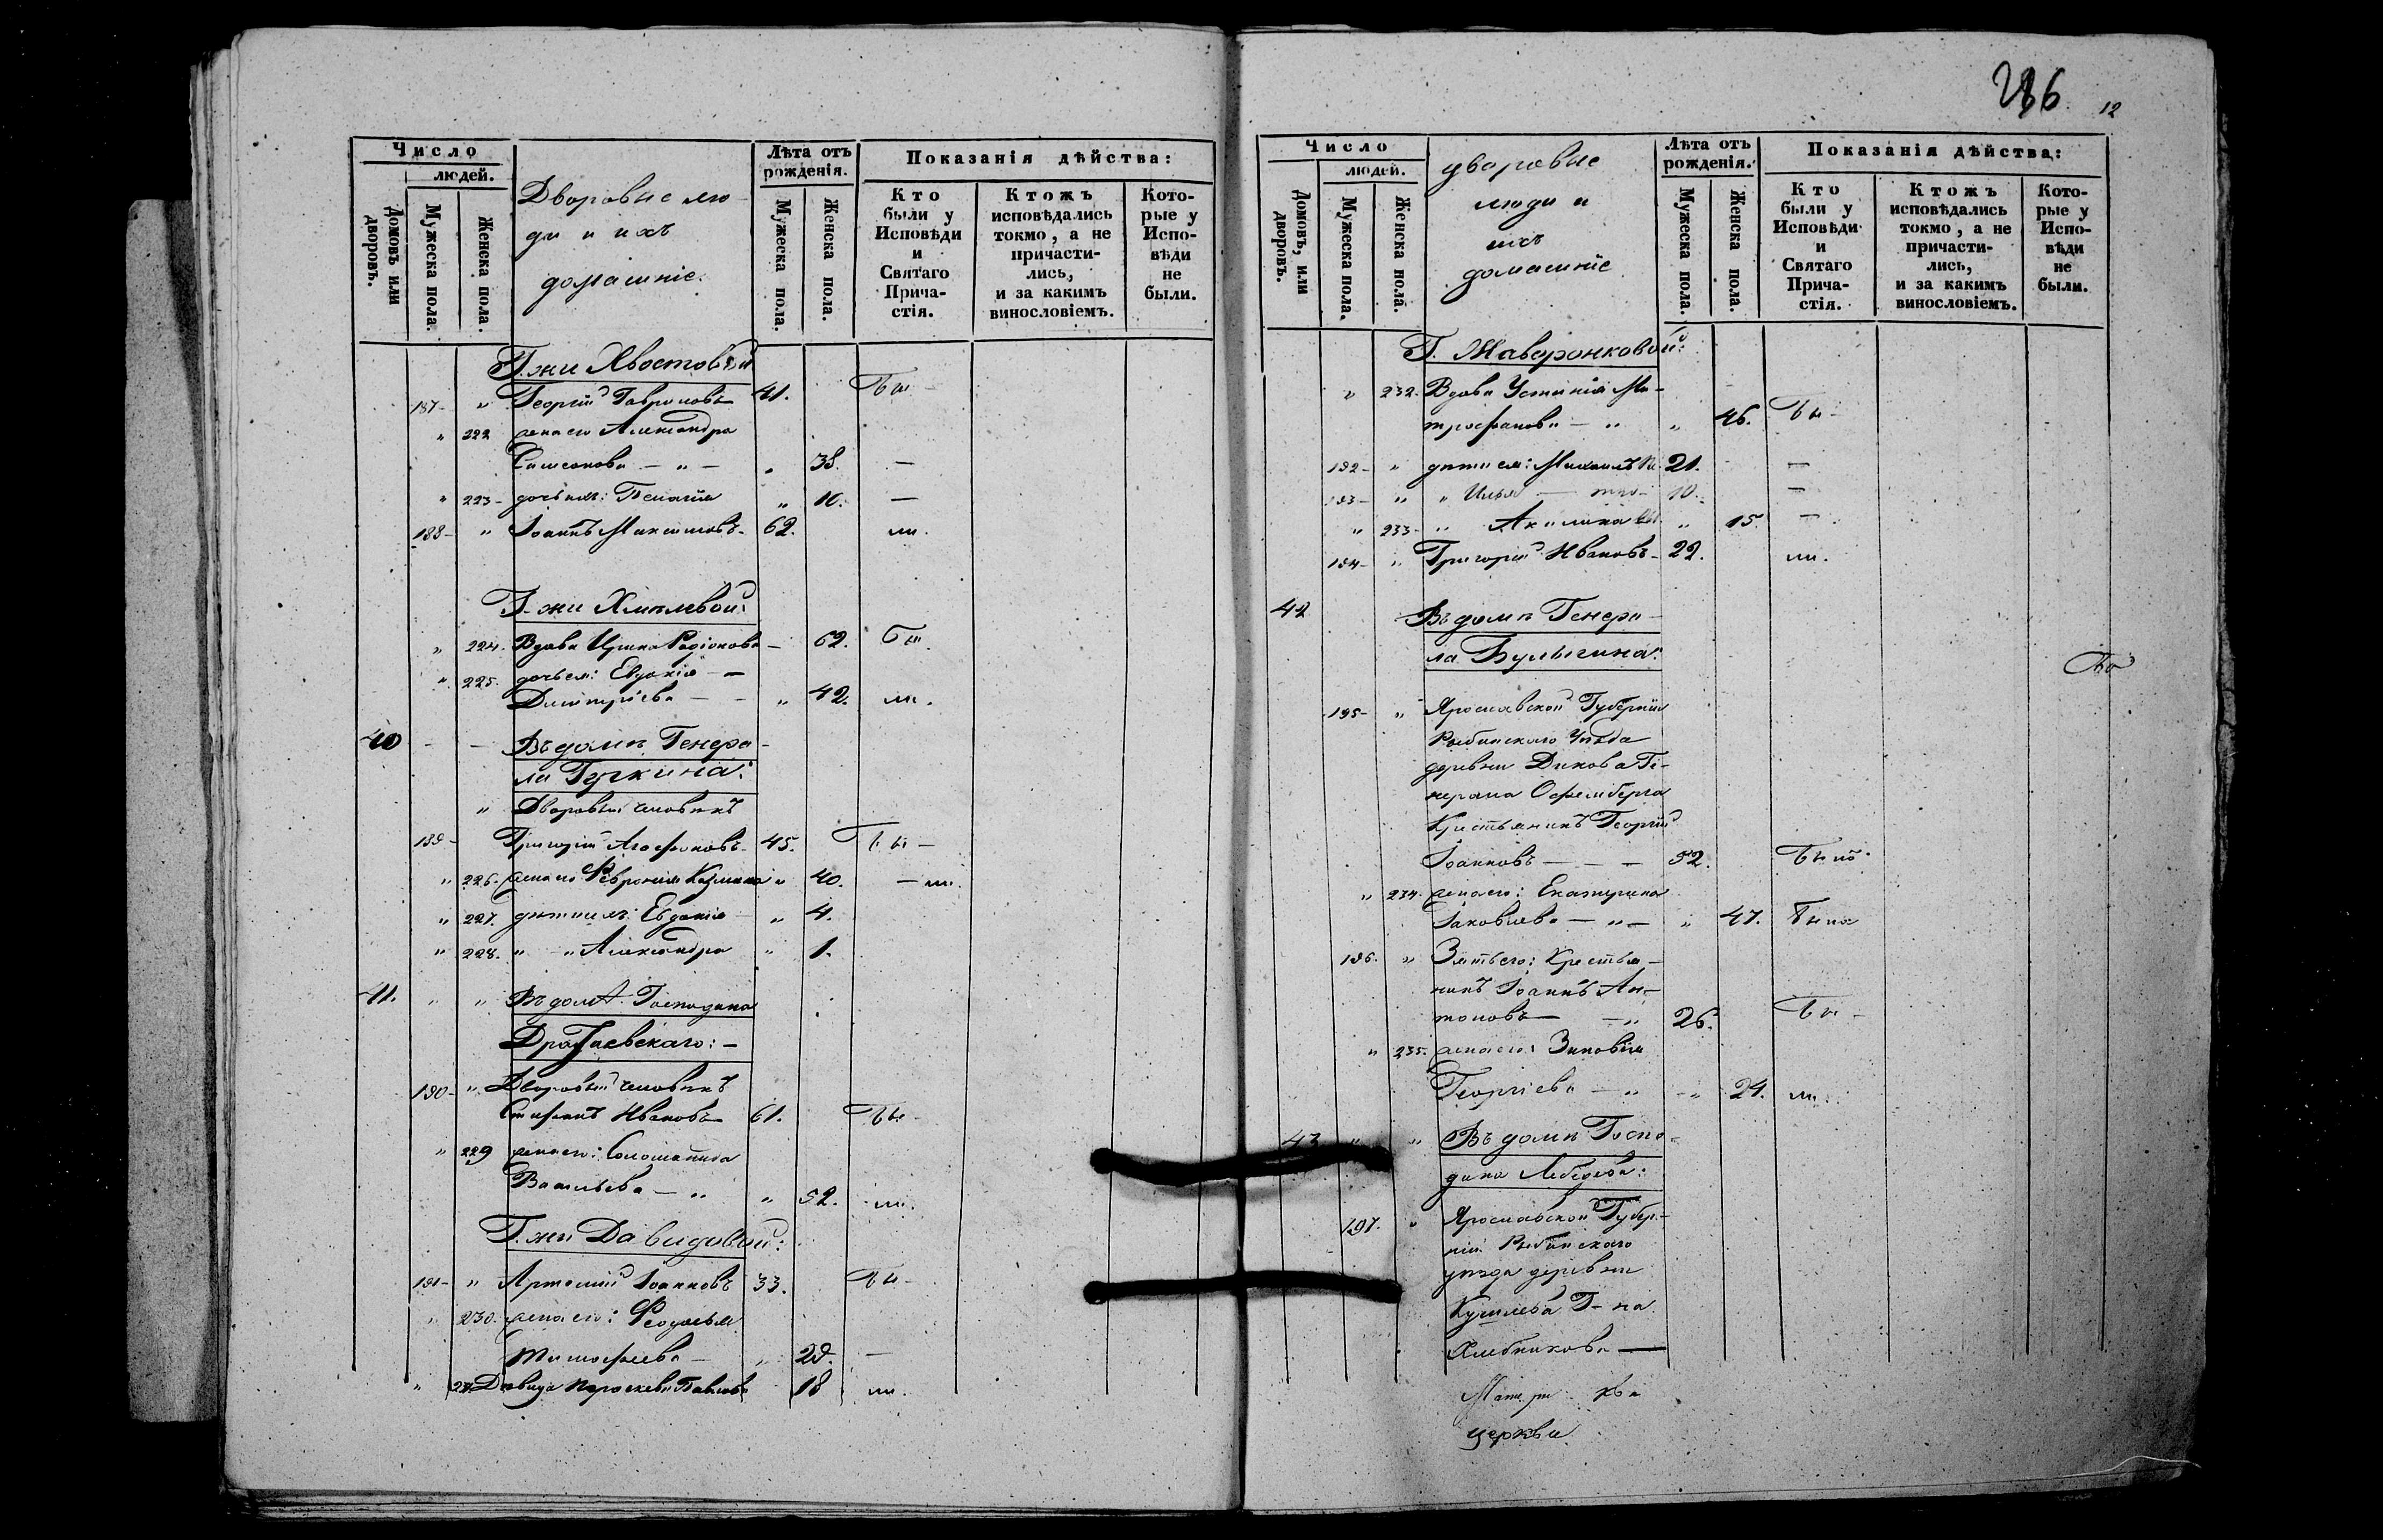 Число
людей.
Домовъ или дворовъ.
Мужеска пола.
Женска пола.
Дворовые лю-
ди и ихъ
домашніе.
Лѣта отъ
рожденія.
Мужеска пола.
Женска пола.
Показанія дѣйства:
Кто
были у
Исповѣди
и
Святаго
Прича-
стія.
Ктожъ
исповѣдались
токмо, а не
причасти-
лись,
и за какимъ
винословіемъ.
Кото-
рые у
Испо-
вѣди
не
были.
Г.жи Хвостовой
187- " Георгій 41. бы
" 222 жена его Александра
Симеонова - " - " 38. —
" 223- дочь ихъ: Пелагія " 10. —
188- " Іоаннъ Максимовъ- 62. ли.
Г.жи Хмѣлевой:
" 224. Вдова Ирина Родіонова - 62. бы.
" 225. дочь ея: Евдокія —
Димитріева - - " 42. ли.
40 - - Въ домѣ Генера-
ла Гучкина:
" Дворовый человѣкъ
189- Григорій Агафоновъ- 45. бы-
" 226. жена его Февронія Казмина " 40. - ли.
" 227. дѣти ихъ: Евдокія " 4.
" 228. " " Александра " 1.
41. " " Въ домѣ Господина
190- " Дворовый человѣкъ
Стефанъ Ивановъ 61. бы-
" 229 жена его: Соломанида
Васильева - " " 52. ли.
Г.жи Давидовой:
191- " Артемій Іоанновъ 33. бы-
" 230. жена его: Феодосья
Тимофеева - " 29. —
" 231 Дѣвица Параскева Павлова 18 ли.
236
12
Число
людей.
Домовъ, или дворовъ.
Мужеска пола.
Женска пола.
дворовые
люди и
ихъ
домашніе
Лѣта отъ
рожденія.
Мужеска пола.
Женска пола.
Показанія дѣйства:
Кто
были у
Исповѣди
и
Святаго
Прича-
стія.
Ктожъ
исповѣдались
токмо, а не
причасти-
лись,
и за какимъ
винословіемъ.
Кото-
рые у
Испо-
вѣди
не
были.
Г. Жаворонковой:
" 232. Вдова Устинія Ми-
трофанова - " " 46. бы-
192- " дѣти ея: Михаилъ 21. —
193- " " Илья 10. —
" 233- " Акилина " 15. —
194- " Григорій Ивановъ- 22. ли.
42 Въ домѣ Генера-
ла Булыгина:
195- " Ярославской Губерніи
Рыбинскаго Уѣзда
деревни Дикова Ге-
нерала
Крестьянинъ Георгій
Іоанновъ - - - 52. былъ
" 234. жена его: Екатерина
Іаковлева - " - " 47. была
196. " Зять его: Крестья-
нинъ Іоаннъ Ан-
тоновъ - " 26. бы-
" 235. жена его: Зиновія
Георгіева - " - " 24. ли.
43 " " Въ домѣ Госпо-
дина Лебедева:
197. " Ярославской Губер-
ніи Рыбинскаго
уѣзда деревни
Г-на
Хлебникова —
церкви